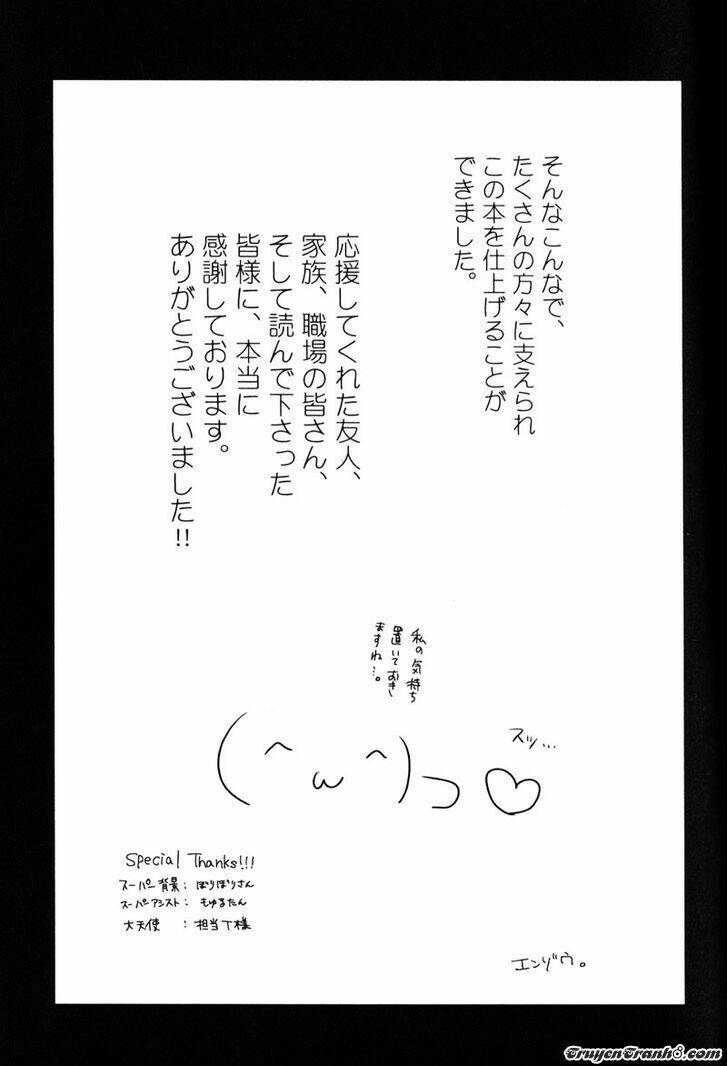 そんなこんなで、
たくさんの方々に支えられ
この本を仕上げることが
できました。
応援してくれた友人、
家族、職場の皆さん、
そして読んで下さった
皆様に、本当に
感謝しております。
ありがとうございました!!
私の気持ち
置いておき
ますね…。
スッ…
(^ω^)っ♡
Special Thanks!!!
スーパー背景：ぽりぽりさん
スーパーアシスト：もゅるたん
大天使：担当T様
エンゾウ。
TruyenTranh8.com